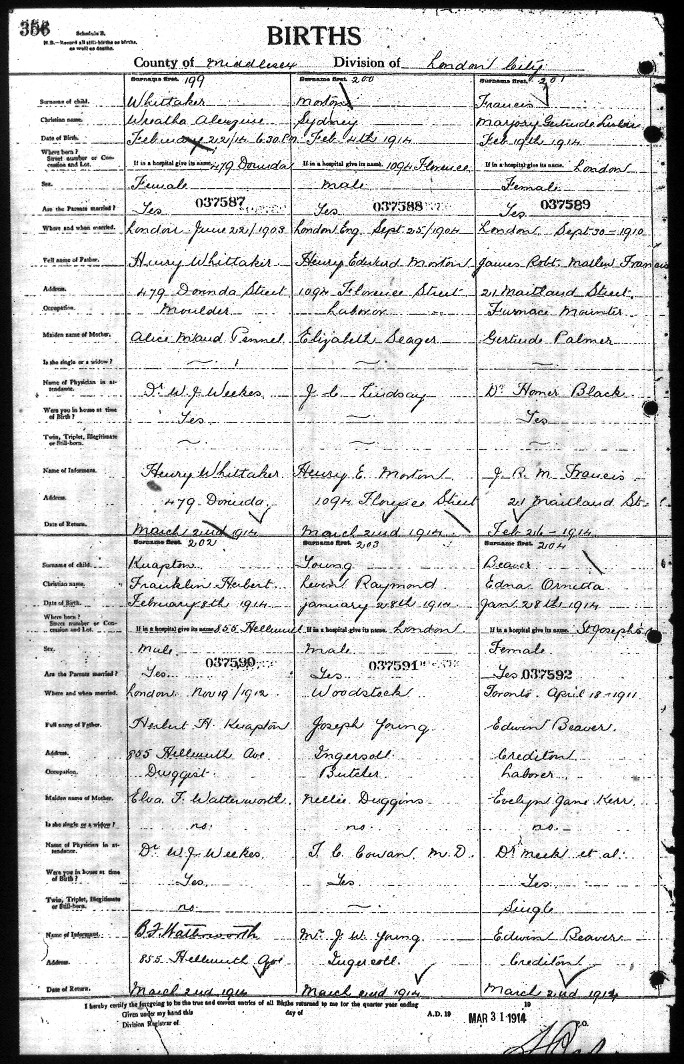 356
Schedule B.
N.B.—Record all still-births as births, as well as deaths.
BIRTHS
County of Middlesex Division of London City
Surname first. 199 Surname first. 200 Surname first. 201
Surname of child. Whittaker Morton Francis
Christian name. Sydney Marjory Gertrude
Date of Birth. February 22/14 6.30 P.M. Feb 4th 1914 Feb 19th 1914
Where born?
Street number or Concession and Lot. If in a hospital give its name. 479 Dorinda If in a hospital give its name. 1094 Florence If in a hospital give its name. London
Sex. Female Male Female
037587 037588 037589
Are the Parents married? Yes Yes Yes
Where and when married. London June 22/1903 London Eng. Sept 25/1904 London Sept 30-1910
Full name of Father. Henry Whittaker Henry Edward Morton James Robt. Mallen Francis
Address. 479 Dorinda Street 1094 Florence Street 21 Maitland Street.
Occupation. Moulder Laboror Furnace Mounter
Maiden name of Mother. Alice Maud Pennel Elizabeth Seager Gertrude Palmer
Is she single or a widow? — — —
Name of Physician in attendance. Dr. W. J. Weekes J. C. Lindsay Dr Homer Black
Were you in house at time of Birth? Yes — Yes
Twin, Triplet, Illegitimate or Still-born. — —
Name of Informant. Henry Whittaker Henry E. Morton J. R. M. Francis
Address. 479 Dorinda 1094 Florence Street 21 Maitland St.
Date of Return. March 2nd 1914 March 2nd 1914 Feb 26-1914
Surname first. 202 Surname first. 203 Surname first. 204
Surname of child. Knapton Young Beaver
Christian name. Franklin Herbert Raymond Edna Ornetta
Date of Birth. February 8th 1914 January 28th 1914 Jan 28th 1914
Where born?
Street number or Concession and Lot. If in a hospital give its name. 855 Hellmuth If in a hospital give its name. London If in a hospital give its name. St Joseph's
Sex. Male Male Female
037590 037591 037592
Are the Parents married? Yes Yes Yes
Where and when married. London Nov 19/1912 Woodstock Toronto. April 18-1911
Full name of Father. Herbert H. Knapton Joseph Young Edwin Beaver
Address. 855 Hellmuth Ave Ingersoll Crediton
Occupation. Druggist Butcher Laborer
Maiden name of Mother. Elva F. Watterworth Nellie Duggins Evelyn Jane Kerr
Is she single or a widow? no no no
Name of Physician in attendance. Dr. W. J. Weekes. T. C. Cowan, M.D. Dr Meek et al.
Were you in house at time of Birth? Yes. Yes Yes
Twin, Triplet, Illegitimate or Still-born. no — Single
Name of Informant. Mr. J. W. Young Edwin Beaver
Address. 855 Hellmuth Ave Ingersoll Crediton
Date of Return. March 2nd 1914 March 2nd 1914 March 2nd 1914
I hereby certify the foregoing to be the true and correct entries of all Births returned to me for the quarter year ending 19
Given under my hand this day of A.D. 19 MAR 31 1914
Division Registrar of
P.O.